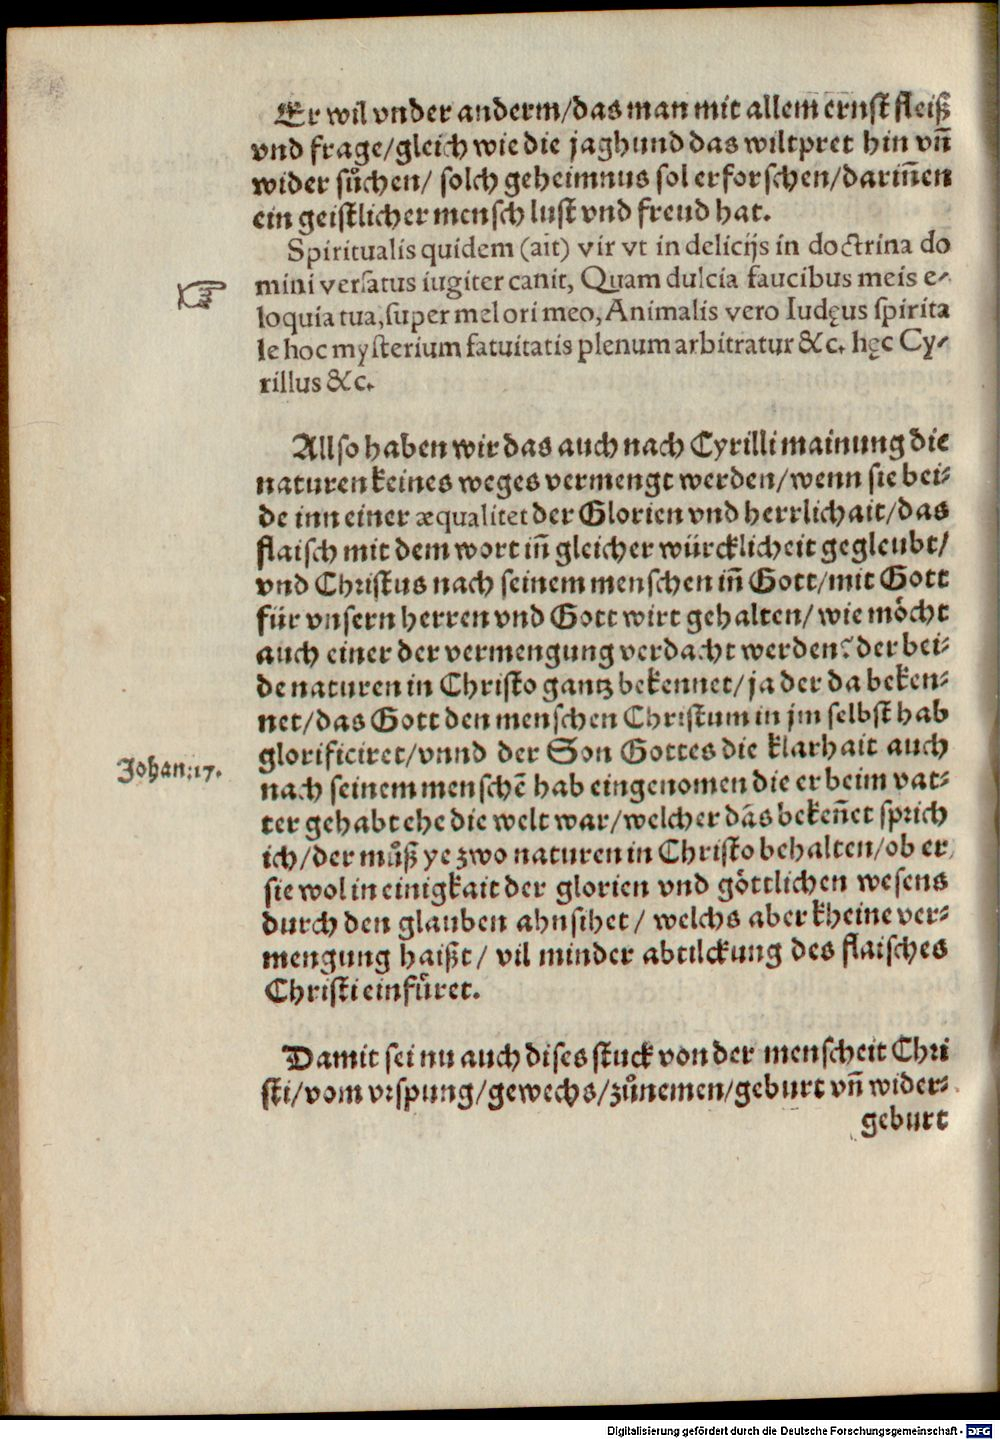 Er wil vnder anderm/das man mit allem ernst fleiß
vnd frage/gleich wie die jaghund das wiltpret hin vñ
wider sůchen/ solch geheimnus sol erforschen/dariñen
ein geistlicher mensch lust vnd freud hat.
Spiritualis quidem (ait) vir vt in delicijs in doctrina do
mini versatus iugiter canit, Quam dulcia faucibus meis e-
loquia tua,super mel ori meo, Animalis vero Iudęus spirita
le hoc mysterium fatuitatis plenum arbitratur &c. hęc Cy-
rillus &c.
Allso haben wir das auch nach Cyrilli mainung die
naturen keines weges vermengt werden/wenn sie bei-
de inn einer æqualitet der Glorien vnd herrlichait/das
flaisch mit dem wort iñ gleicher würcklicheit gegleubt/
vnd Christus nach seinem menschen iñ Gott/mit Gott
für vnsern herren vnd Gott wirt gehalten/ wie möcht
auch einer der vermengung verdacht werden? der bei-
de naturen in Christo gantz bekennet/ja der da beken-
net/das Gott den menschen Christum in jm selbst hab
glorificiret/vnnd der Son Gottes die klarhait auch
Johan:17.
nach seinem menschē hab eingenomen die er beim vat-
ter gehabt ehe die welt war/welcher das bekeñet sprich
ich/der můß ye zwo naturen in Christo behalten/ob er
sie wol in einigkait der glorien vnd göttlichen wesens
durch den glauben ahnsihet/ welchs aber kheine ver-
mengung haißt/ vil minder abtilckung des flaisches
Christi einfüret.
Damit sei nu auch dises stuck von der menscheit Chri
sti/vom vrspung/gewechs/zůnemen/geburt vñ wider-
geburt
Digitalisierung gefördert durch die Deutsche Forschungsgemeinschaft - DFG